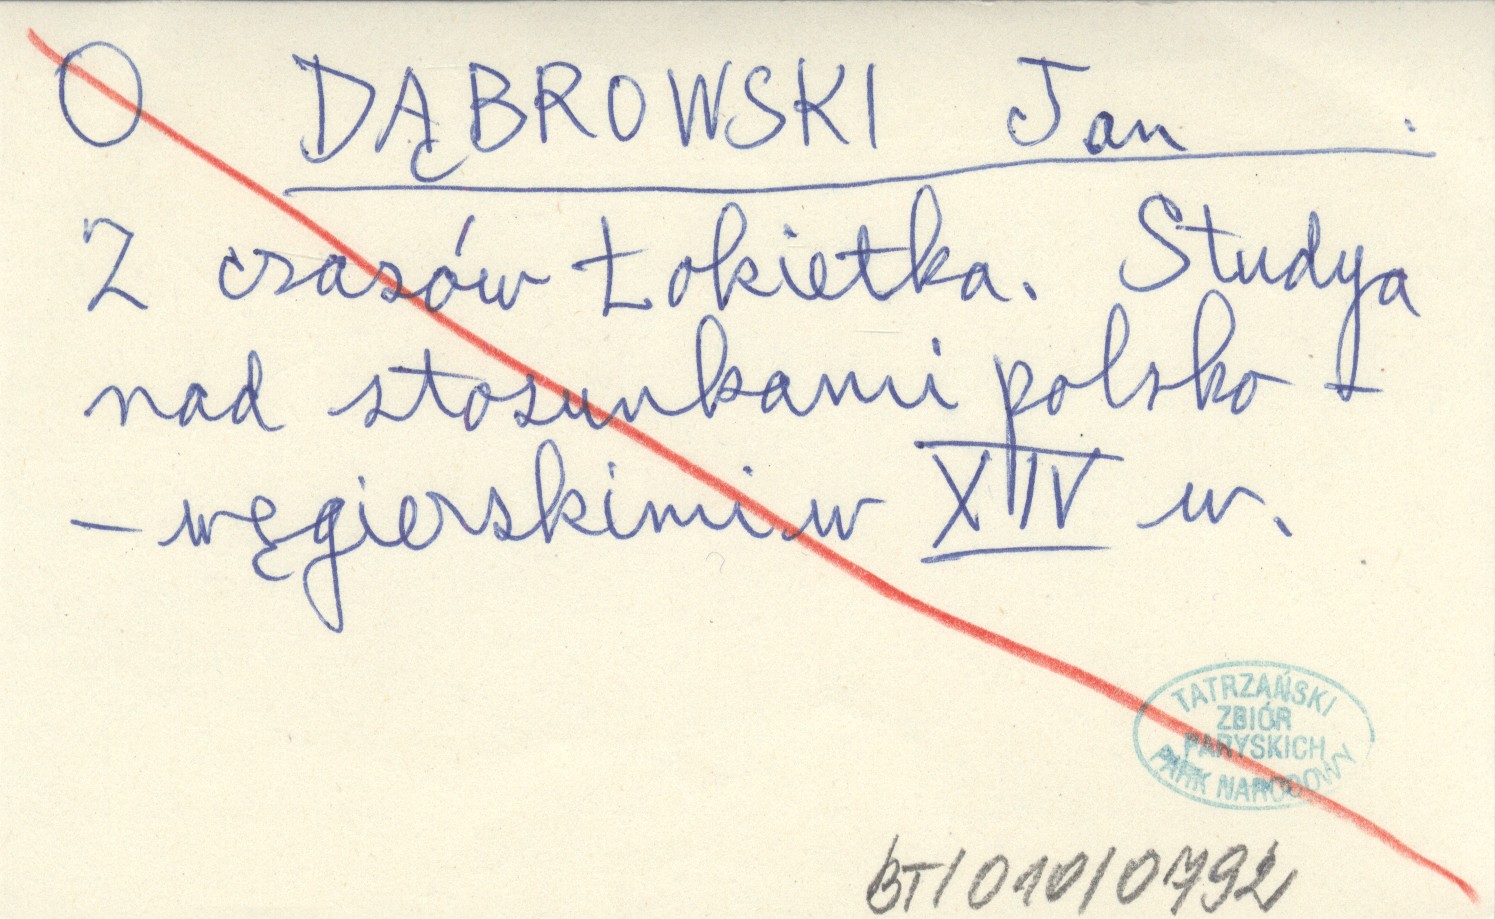 O DĄBROWSKI Jan
Z czasów Łokietka. Studya
nad stosunkami polsko -
- węgierskimi w XIV w.
TATRZAŃSKI
ZBIÓR
PARYSKICH
PARK NARODOWY
BT/010/0792